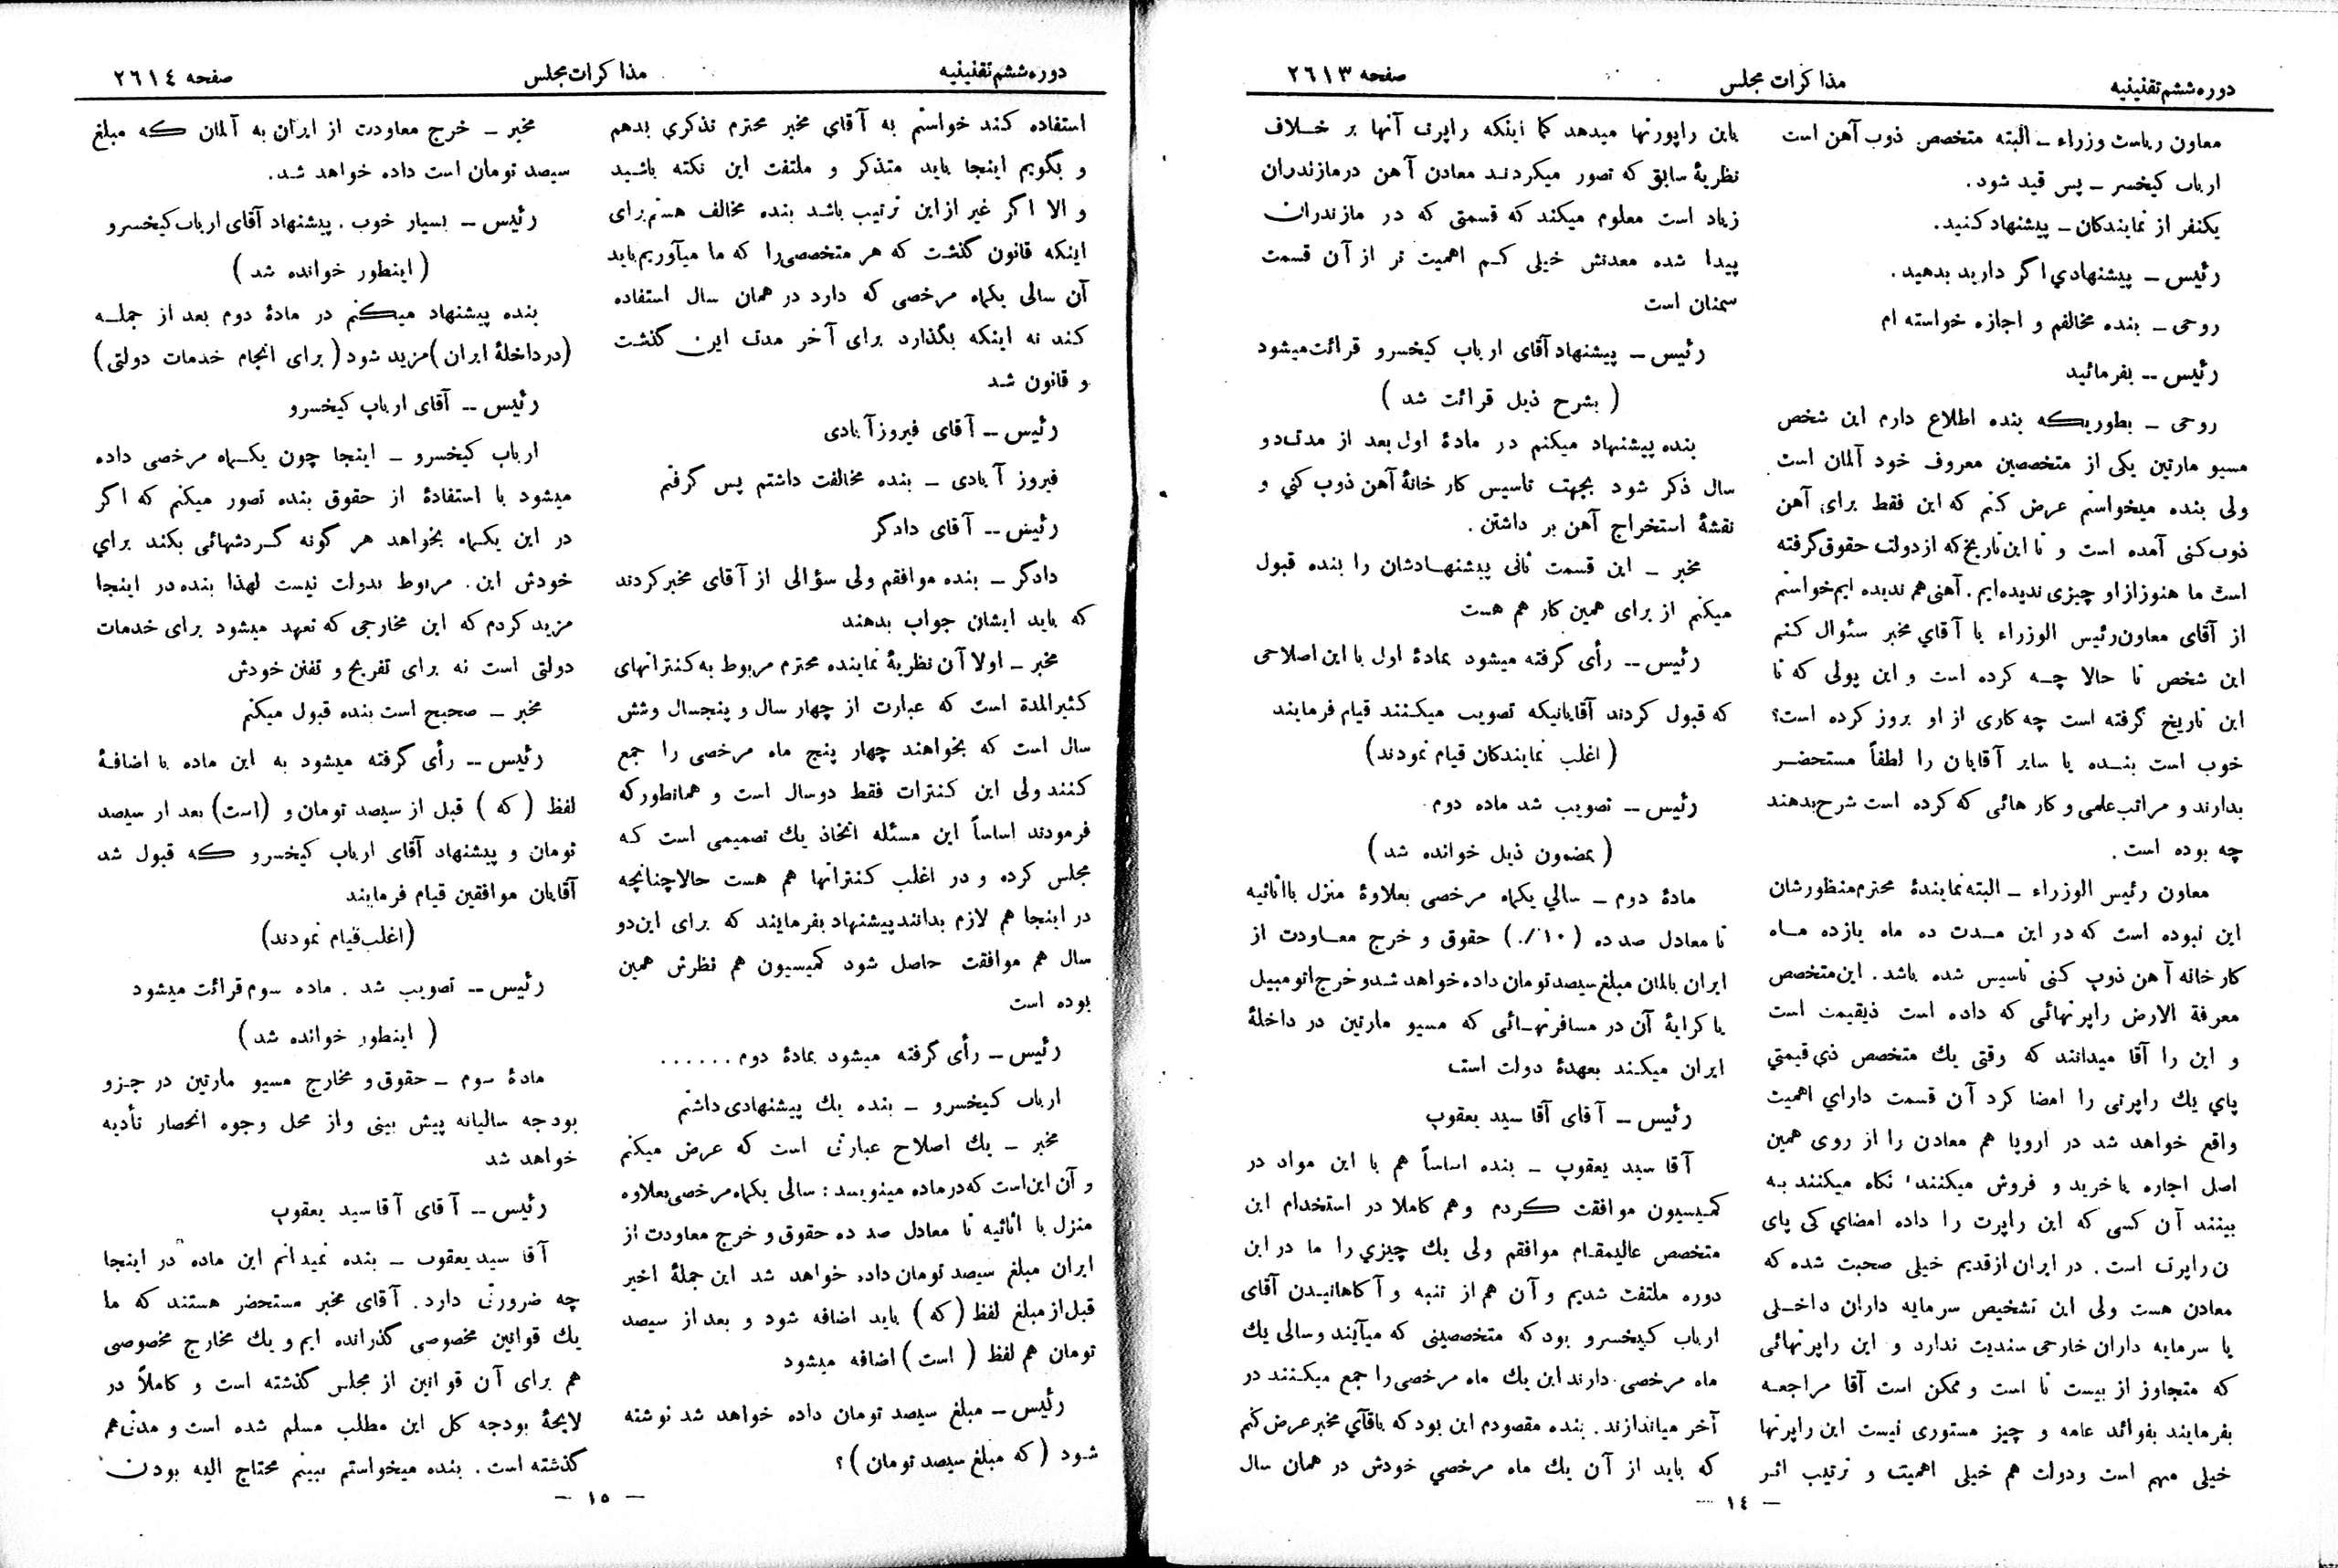 دوره ششم تقنینیه
مذاکرات مجلس
صفحه ۲٦۱۳
معاون ریاست وزراء ــ البته متخصص ذوب آهن است
ارباب کیخسر ــ پس قید شود.
یکنفر از نمایندکان ــ پیشنهاد کنید.
رئیس ــ پیشنهادي اگر دارید بدهید.
روحی ــ بنده مخالفم و اجازه خواسته ام
رئیس ــ بفرمائید
روحی ــ بطوریکه بنده اطلاع دارم این شخص
مسیو مارتین یکی از متخصصین معروف خود آلمان است
ولی بنده میخواستم عرض کنم که این فقط برای آهن
ذوب کنی آمده است و تا این تاریخ که از دولت حقوق گرفته
است ما هنوز از او چیزی ندیده ایم. آهنی هم ندیده ایم خواستم
از آقای معاون رئیس الوزراء یا آقاي مخبر سئوال کنم
این شخص تا حالا چه کرده است و این پولی که تا
این تاریخ گرفته است چه کاری از او بروز کرده است؟
خوب است بنده یا سایر آقایان را لطفاً مستحضر
بدارند و مراتب علمی و کار هائی که کرده است شرح بدهند
چه بوده است.
معاون رئیس الوزراء ــ البته نمایندهٔ محترم منظورشان
این نبوده است که در این مدت ده ماه یازده ماه
کارخانه آهن ذوب کنی تاسیس شده باشد. این متخصص
معرفة الارض راپرتهائی که داده است ذیقیمت است
و این را آقا میدانند که وقتی یك متخصص ذي قیمتي
پاي یك راپرتی را امضا کرد آن قسمت داراي اهمیت
واقع خواهد شد در اروپا هم معادن را از روی همین
اصل اجاره یا خرید و فروش میکنند، نکاه میکنند به
بینند آن کسی که این راپرت را داده امضاي کی پای
ن راپرت است. در ایران از قدیم خیلی صحبت شده که
معادن هست ولی این تشخیص سرمایه داران داخلی
یا سرمایه داران خارجی سندیت ندارد و این راپرتهائی
که متجاوز از بیست تا است و ممکن است آقا مراجعه
بفرمایند بفوائد عامه و چیز مستوری نیست این راپرتها
خیلی مهم است و دولت هم خیلی اهمیت و ترتیب اثر
باین راپورتها میدهد کما اینکه راپرت آنها بر خلاف
نظریهٔ سابق که تصور میکردند معادن آهن در مازندران
زیاد است معلوم میکند که قسمتی که در مازندران
پیدا شده معدنش خیلی کم اهمیت تر از آن قسمت
سمنان است
رئیس ــ پیشنهاد آقای ارباب کیخسرو قرائت میشود
( بشرح ذیل قرائت شد )
بنده پیشنهاد میکنم در مادهٔ اول بعد از مدت دو
سال ذکر شود بجهت تاسیس کار خانهٔ آهن ذوب کني و
نقشهٔ استخراج آهن بر داشتن.
مخبر ــ این قسمت ثانی پیشنهادشان را بنده قبول
میکنم از برای همین کار هم هست
رئیس ــ رأی گرفته میشود بمادهٔ اول با این اصلاحی
که قبول کردند آقایانیکه تصویب میکنند قیام فرمایند
( اغلب نمایندکان قیام نمودند)
رئیس ــ تصویب شد ماده دوم.
( بمضمون ذیل خوانده شد )
مادهٔ دوم ــ سالي یکماه مرخصی بعلاوهٔ منزل با اثاثیه
تا معادل صد ده ( ۱۰٪ ) حقوق و خرج معاودت از
ایران بالمان مبلغ سیصد تومان داده خواهد شد و خرج اتومبیل
یا کرایهٔ آن در مسافرتهائی که مسیو مارتین در داخلهٔ
ایران میکند بعهدهٔ دولت است
رئیس ــ آقای آقا سید یعقوب
آقا سید یعقوب ــ بنده اساساً هم با این مواد در
کمیسیون موافقت کردم و هم کاملا در استخدام این
متخصص عالیمقام موافقم ولی یك چیزي را ما در این
دوره ملتفت شدیم و آن هم از تنبه و آکاهانیدن آقای
ارباب کیخسرو بود که متخصصینی که میآیند و سالی یك
ماه مرخصی دارند این یك ماه مرخصی را جمع میکنند در
آخر میاندازند. بنده مقصودم این بود که باقآي مخبر عرض کنم
که باید از آن یك ماه مرخصي خودش در همان سال
— ۱٤ —
دوره ششم تقنینیه
مذاکرات مجلس
صفحه ۲٦۱٤
استفاده کند خواستم به آقاي مخبر محترم تذکري بدهم
و بگویم اینجا باید متذکر و ملتفت این نکته باشید
و الا اگر غیر از این ترتیب باشد بنده مخالف هستم برای
اینکه قانون گذشت که هر متخصصی را که ما میآوریم باید
آن سالی یکماه مرخصی که دارد در همان سال استفاده
کند نه اینکه بگذارد برای آخر مدت این گذشت
و قانون شد
رئیس ــ آقای فیروز آبادی
فیروز آبادی ــ بنده مخالفت داشتم پس گرفتم
رئیس ــ آقای دادگر
دادگر ــ بنده موافقم ولی سؤالی از آقای مخبر کردند
که باید ایشان جواب بدهند
مخبر ــ اولا آن نظریهٔ نماینده محترم مربوط به کنتراتهای
کثیر المدة است که عبارت از چهار سال و پنجسال و شش
سال است که بخواهند چهار پنج ماه مرخصی را جمع
کنند ولی این کنترات فقط دو سال است و همانطور که
فرمودند اساساً این مسئله اتخاذ یك تصمیمی است که
مجلس کرده و در اغلب کنتراتها هم هست حالا چنانچه
در اینجا هم لازم بدانند پیشنهاد بفرمایند که برای این دو
سال هم موافقت حاصل شود کمیسیون هم نظرش همین
بوده است
رئیس ــ رأی گرفته میشود بمادهٔ دوم ......
ارباب کیخسرو ــ بنده یك پیشنهادی داشتم
مخبر ــ یك اصلاح عبارتی است که عرض میکنم
و آن این است که در ماده مینویسد: سالی یکماه مرخصی بعلاوه
منزل با اثاثیه تا معادل صد ده حقوق و خرج معاودت از
ایران مبلغ سیصد تومان داده خواهد شد این جملهٔ اخیر
قبل از مبلغ لفظ ( که ) باید اضافه شود و بعد از سیصد
تومان هم لفظ ( است ) اضافه میشود
رئیس ــ مبلغ سیصد تومان داده خواهد شد نوشته
شود ( که مبلغ سیصد تومان )؟
مخبر ــ خرج معاودت از ایران به آلمان که مبلغ
سیصد تومان است داده خواهد شد.
رئیس ــ بسیار خوب. پیشنهاد آقای ارباب کیخسرو
( اینطور خوانده شد )
بنده پیشنهاد میکنم در مادهٔ دوم بعد از جمله
(در داخلهٔ ایران) مزید شود ( برای انجام خدمات دولتی )
رئیس ــ آقای ارباب کیخسرو
ارباب کیخسرو ــ اینجا چون یکماه مرخصی داده
میشود با استفادهٔ از حقوق بنده تصور میکنم که اگر
در این یکماه بخواهد هر گونه گردشهائی بکند براي
خودش این. مربوط بدولت نیست لهذا بنده در اینجا
مزید کردم که این مخارجی که تعهد میشود برای خدمات
دولتی است نه برای تفریح و تفنن خودش
مخبر ــ صحیح است بنده قبول میکنم
رئیس ــ رأی گرفته میشود به این ماده با اضافهٔ
لفظ ( که ) قبل از سیصد تومان و (است) بعد از سیصد
تومان و پیشنهاد آقای ارباب کیخسرو که قبول شد
آقایان موافقین قیام فرمایند
(اغلب قیام نمودند)
رئیس ــ تصویب شد. ماده سوم قرائت میشود
( اینطور خوانده شد )
مادهٔ سوم ــ حقوق و مخارج مسیو مارتین در جزو
بودجه سالیانه پیش بینی و از محل وجوه انحصار تأدیه
خواهد شد
رئیس ــ آقای آقا سید یعقوب
آقا سید یعقوب ــ بنده نمیدانم این ماده در اینجا
چه ضرورتی دارد. آقای مخبر مستحضر هستند که ما
یك قوانین مخصوصی گذرانده ایم و یك مخارج مخصوصی
هم برای آن قوانین از مجلس گذشته است و کاملاً در
لایحهٔ بودجه کل این مطلب مسلم شده است و مدتی هم
گذشته است. بنده میخواستم ببینم محتاج الیه بودن
— ۱٥ —